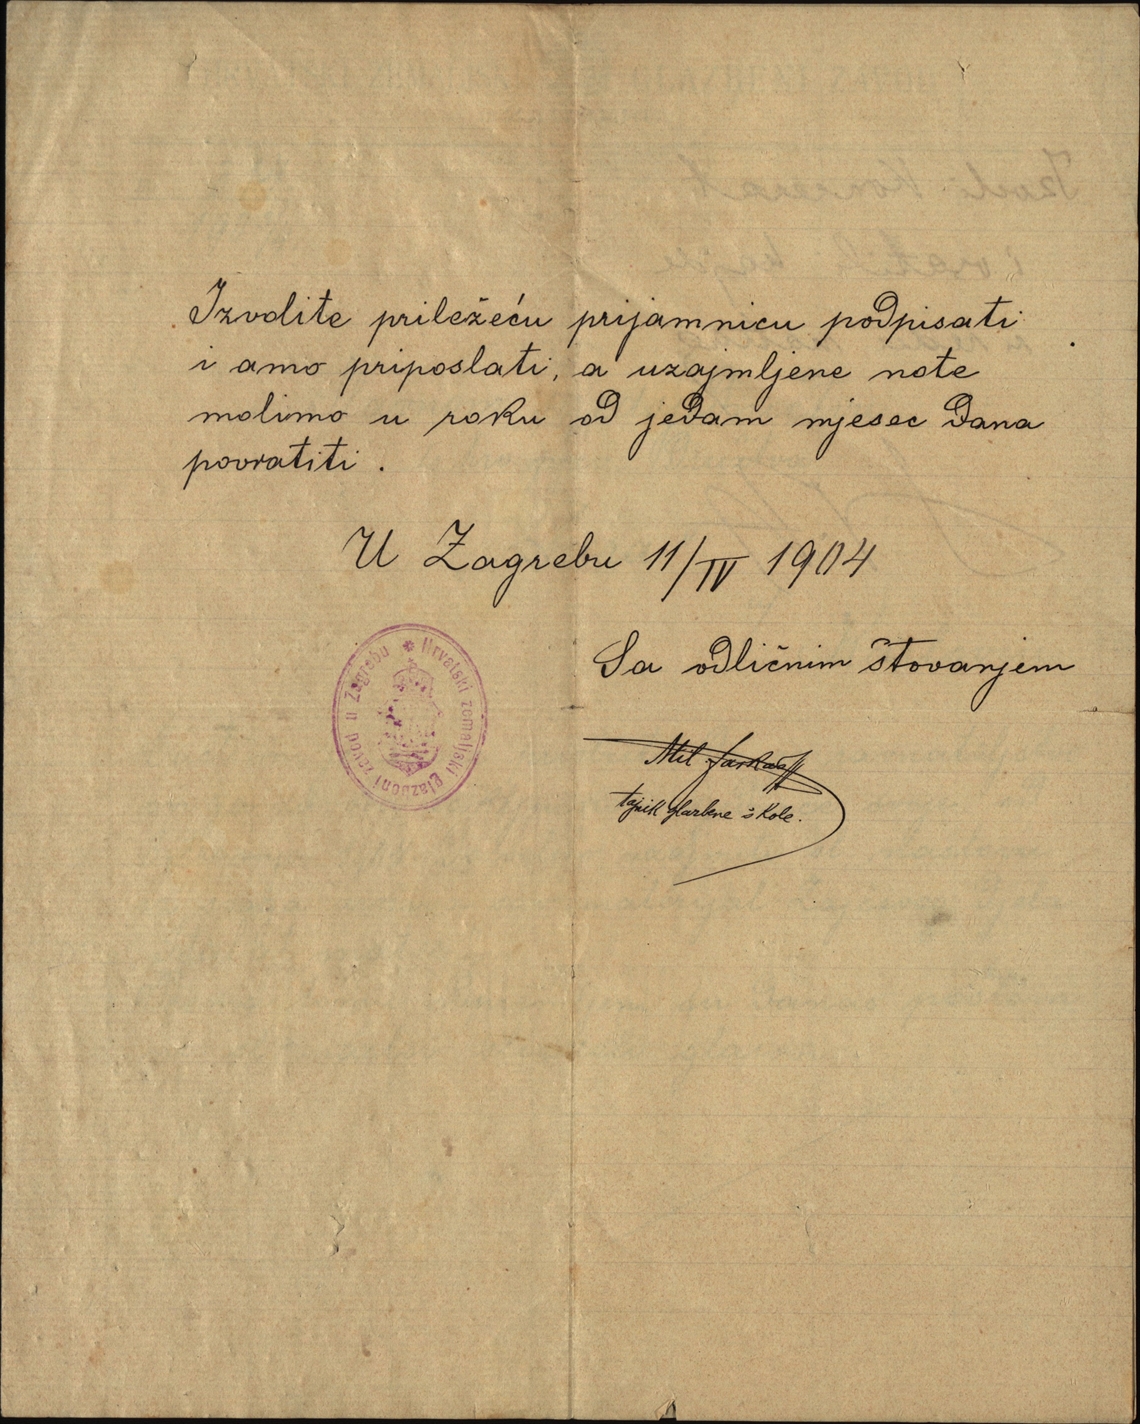 Izvolite priležeću prijamnicu podpisati
i amo priposlati, a uzajmljene note
molimo u roku od jedam mjesec dana
povratiti.
U Zagrebu 11/IV 1904
Hrvatski zemaljski glazbeni zavod u Zagrebu
Sa odličnim štovanjem
Mil.
tajnik glazbene škole.